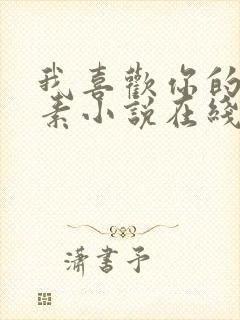 我喜歡你的
素小說在綫
瀟書予